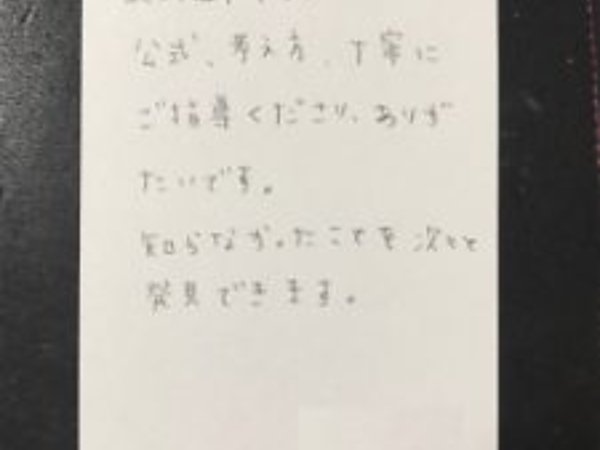 公式、考え方、丁寧に
ご指導くださり、ありが
たいです。
知らなかったことを次々と
発見できます。